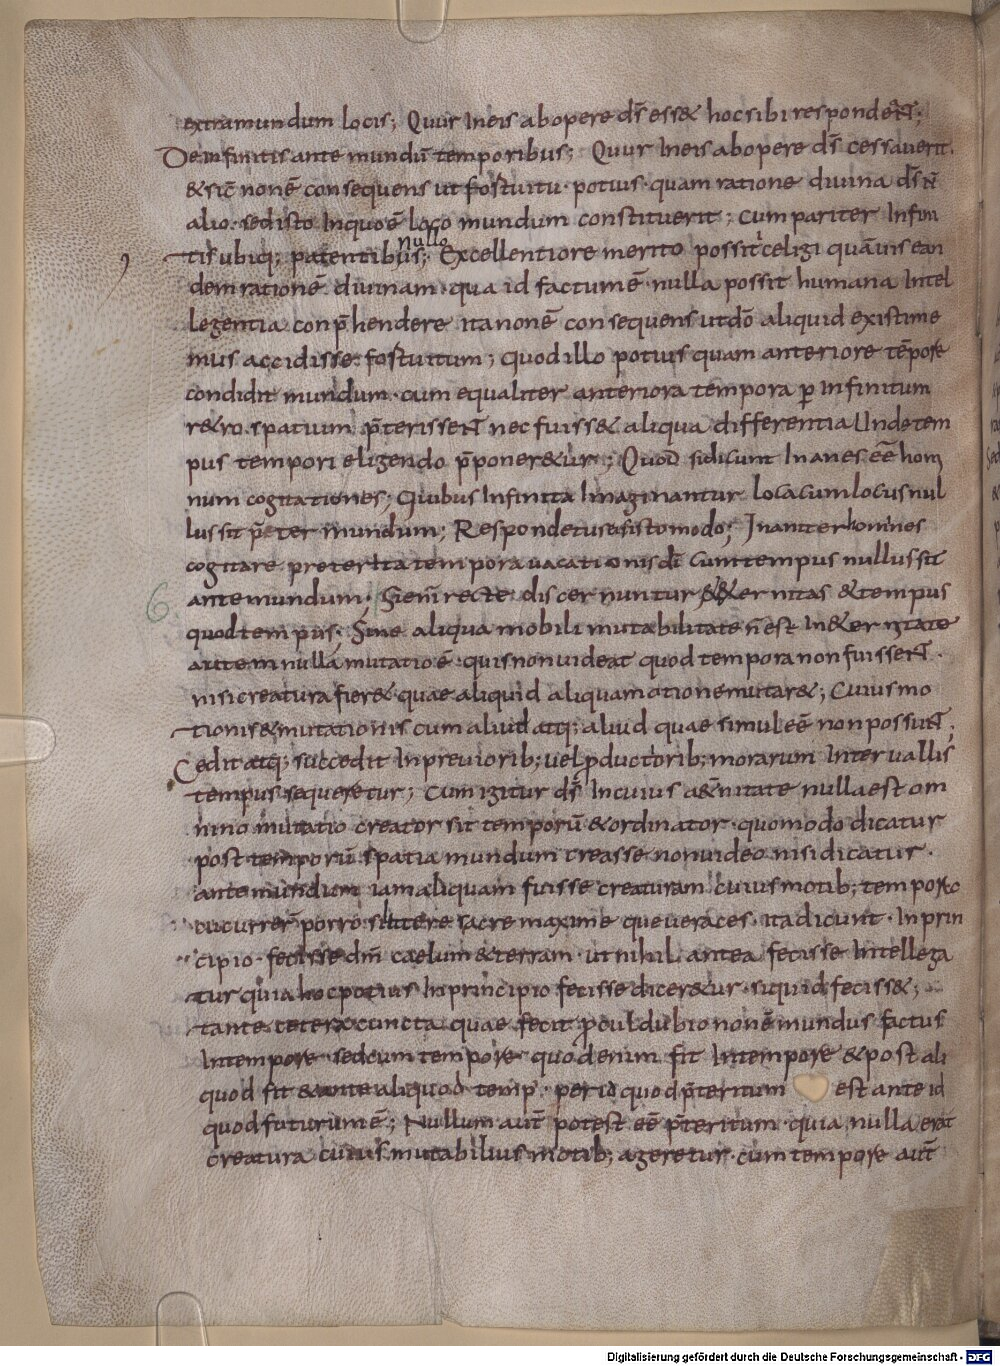 extramundum locis; Quur In eis ab opere d̄s ess& hoc sibi respondeNT;
De infinitis ante mundū temporibus; Quur In eis ab opere d̄s cessaverit.
& sic̄ non ē consequens ut fostuitu· potius· quam ratione divina d̄s n̄
alio· sed isto In quo ē loco mundum constituerit; cum pariter Infini
tis ubiq; patentibus; Excellentiore merito possit celigi quāuis ean
nullo
dem rationē divinam· qua id factum ē nulla possit humana Intel
legentia conp̄hendere ita non ē consequens ut dō aliquid existime
mus accidisse fostuitum; quod illo potius quam anteriore tēpore
condidit mundum· cum equaliter anteriora tempora ꝑ Infinitum
r&ro spatium p̄terisseNT nec fuiss& aliqua differentia Unde tem
pus tempori eligendo p̄poner&ur; Quod si dicunt Inanes eē homi
num cogitationes; Quibus Infinita Imaginantur loca cum locus nul
lus sit p̄ter mundum; Respondetur isto modo; Inaniter homines
cogitare preterita tempora vacationis dī cum tempus nullus sit
6 ante mundum· Si enim recte discernuntur &ernitas & tempus
quod tempus; Sine aliqua mobili mutabilitate n̄ est In &ernitate
autem nulla mutatio ē· quis non uideat quod tempora non fuisseNT·
nisi creatura fier& quae aliquid aliqua motione mutar&; Cuius mo
tionis & mutationis cum aliud atq; aliud quae simul eē non possuNT;
Cedit atq; succedit In previorib; uel ꝓductorib; morarum Intervallis
tempus sequeretur; Cum igitur d̄s In cuius a&nitate nulla est om
nino mutatio creator sit temporū & ordinator· quomodo dicatur
post temporū spatia mundum creasse non video nisi dicatur·
ante mundum iam aliquam fuisse creaturam cuius motib; tempora
cucurrer̄ porro si littere sacre maxime que veraces· ita dicunt· In prin
cipio· fecisse dm̄ caelum & terram· ut nihil antea fecisse Intellega
tur quia hoc potius In principio fecisse dicer&ur· si quid feciss&;
tante cetera cuncta quae fecit ꝓcul dubio non ē mundus factus
In tempore· sed cum tempore· quod enim fit In tempore & post ali
quod fit & ante aliquod temp̄· per id quod p̄teritum est ante id
quod futurum ē; Nullum aut̄ potest eē p̄teritum· quia nulla erat
creatura cuius mutabilius motib; ageretur· cum tempore aut̄
Digitalisierung gefördert durch die Deutsche Forschungsgemeinschaft - DFG